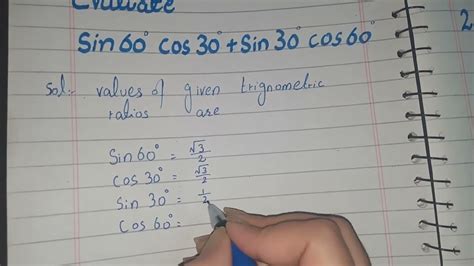 Evaluate
2
Sin 60° cos 30° + Sin 30° cos 60°
Sol:- values of given trignometric
ratios are
Sin 60° = √3/2
Cos 30° = √3/2
Sin 30° = 1/2
Cos 60° =